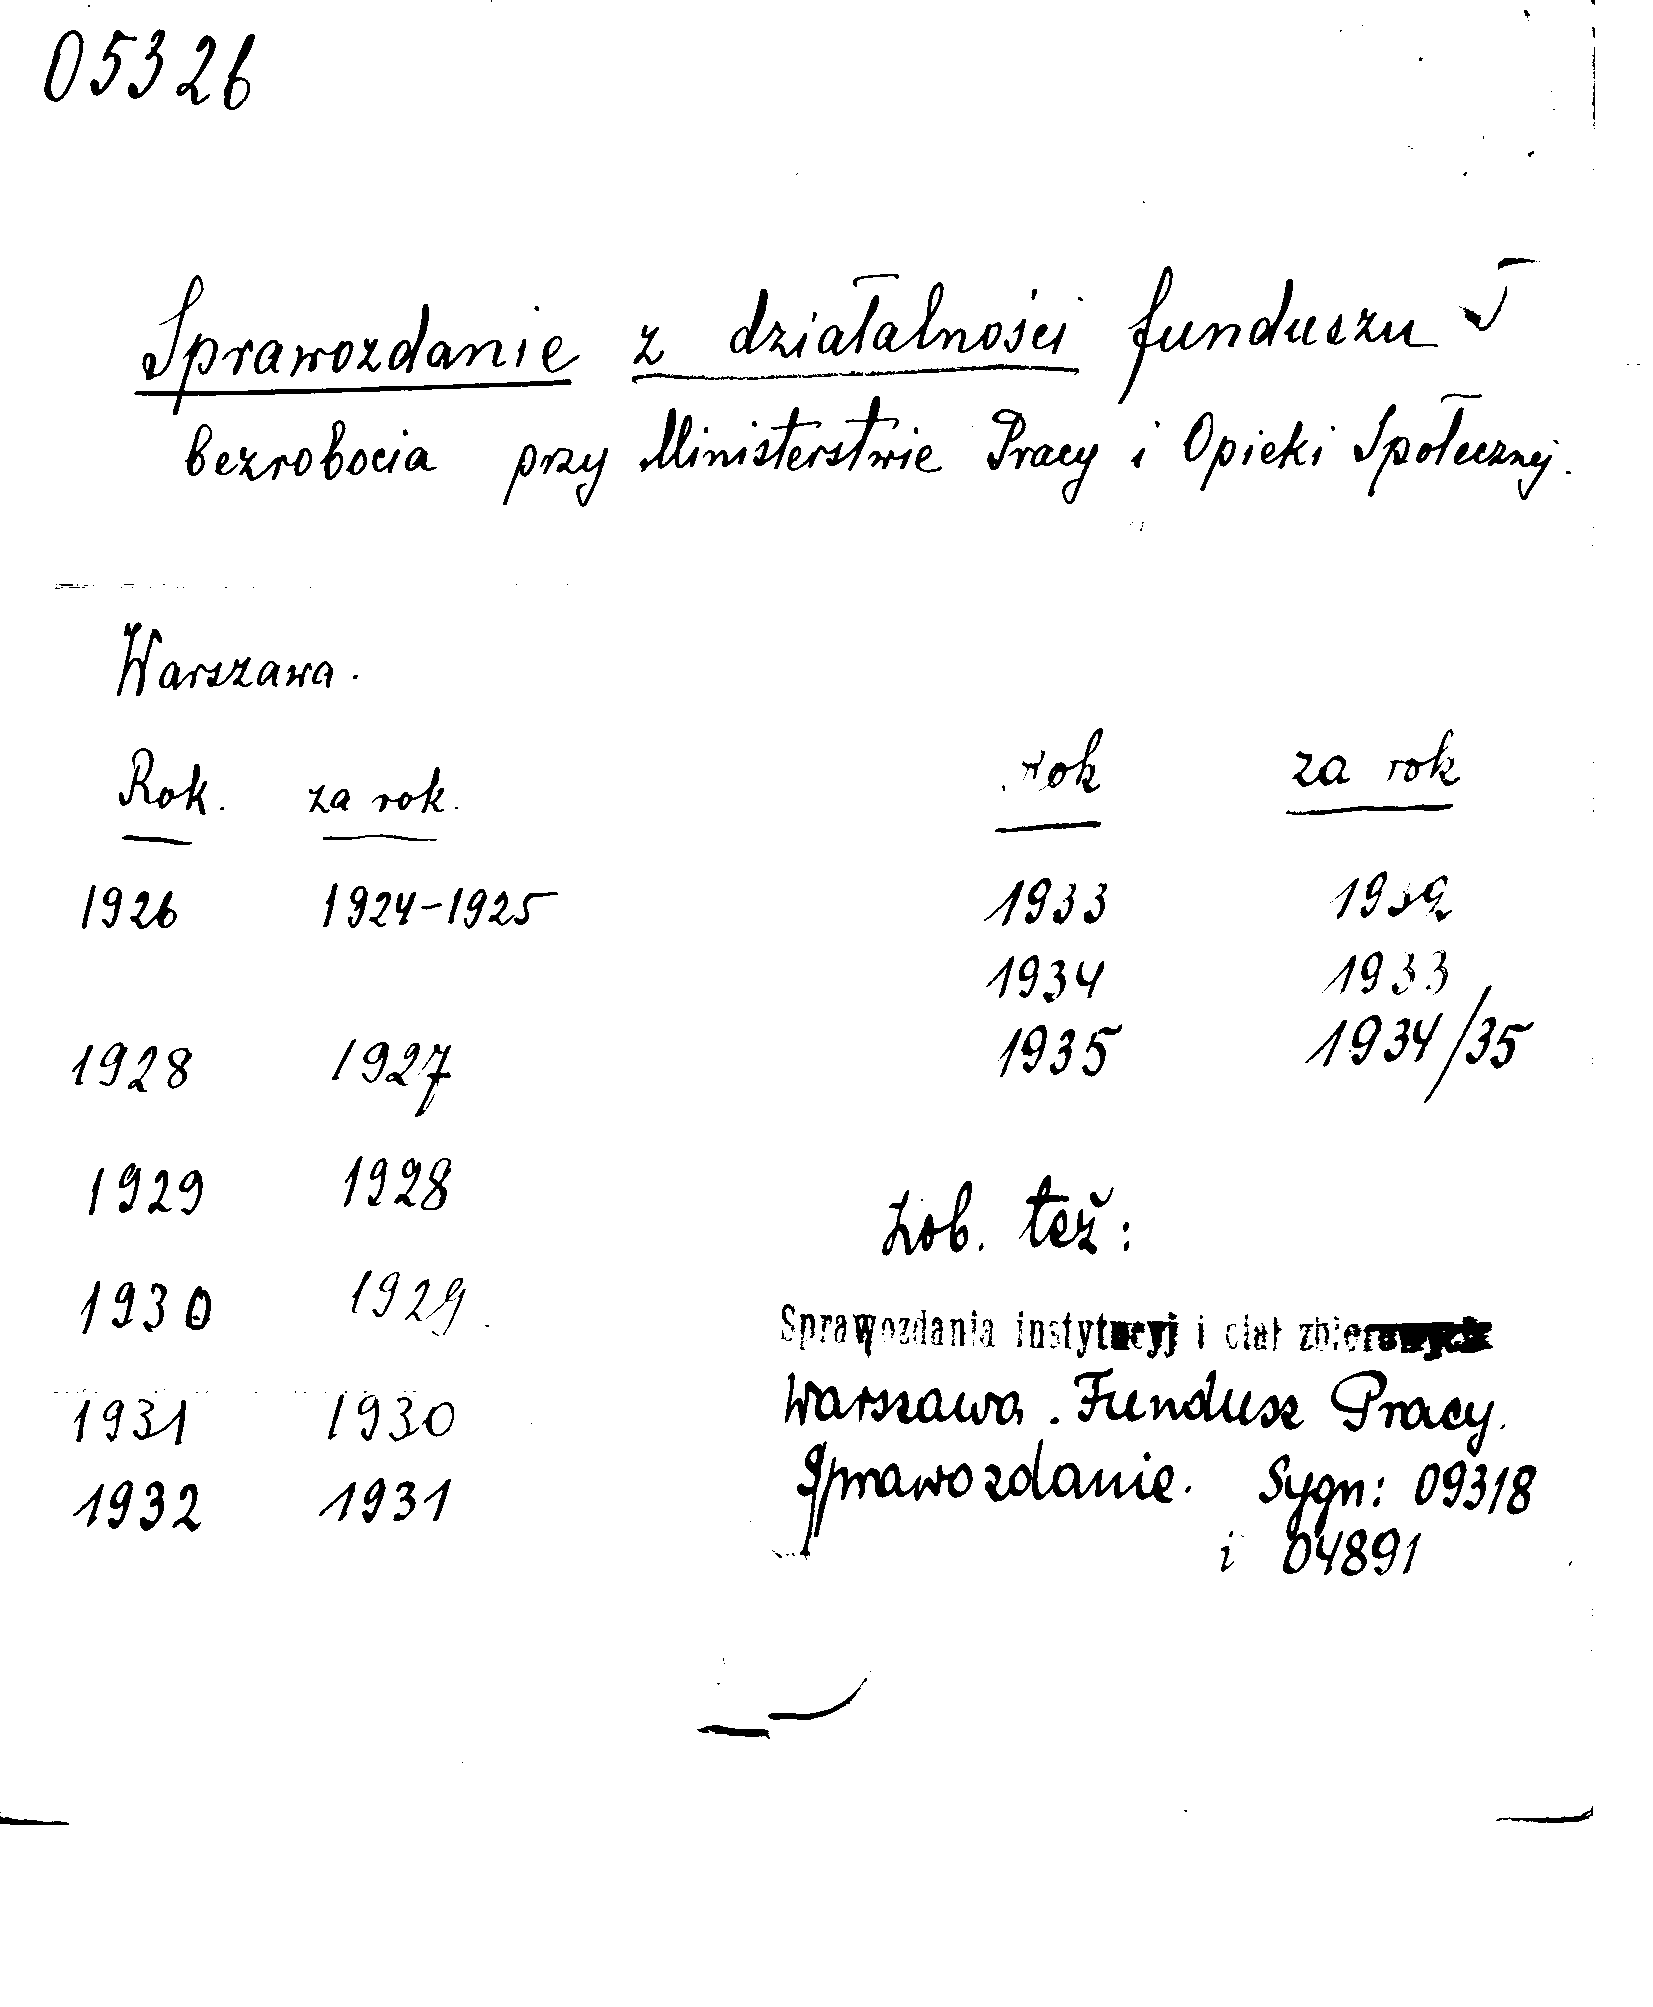 05326
Sprawozdanie z działalności funduszu
bezrobocia przy Ministerstwie Pracy i Opieki Społecznej.
Warszawa.
Rok. za rok.
1926 1924-1925
1928 1927
1929 1928
1930 1929.
1931 1930
1932 1931
rok za rok
1933 1932
1934 1933
1935 1934/35
Zob. też:
Sprawozdania instytucyj i ciał zbiorowych
Warszawa. Fundusz Pracy.
Sprawozdanie. Sygn: 09318
i 04891